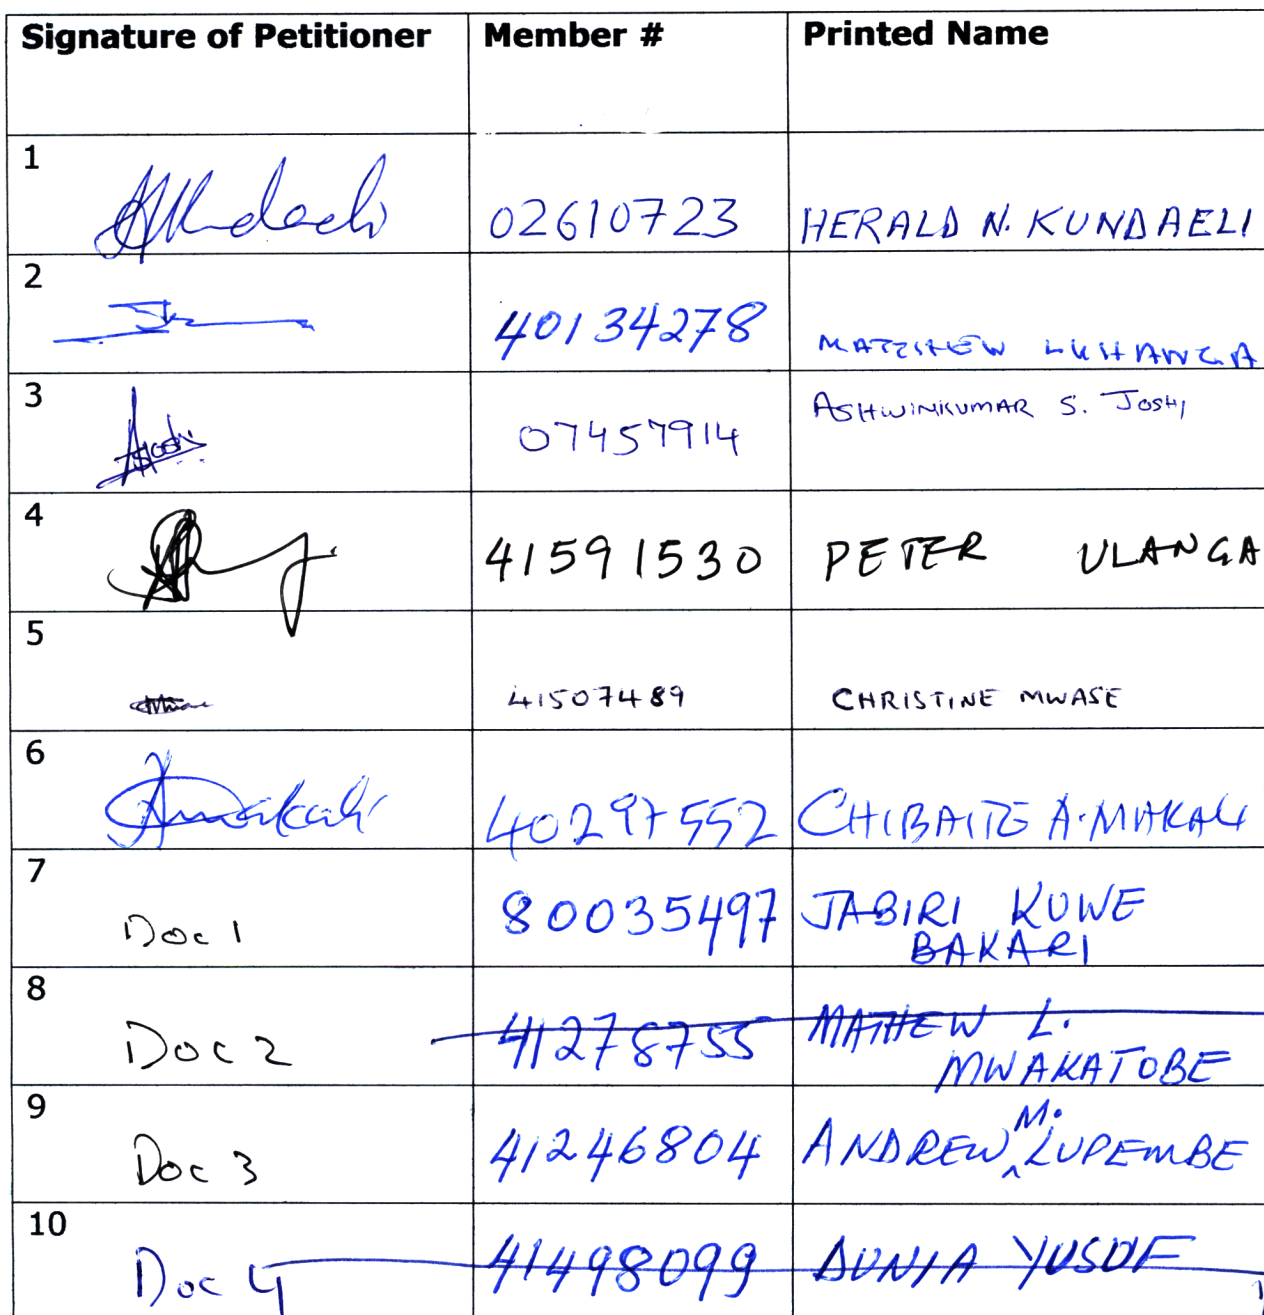 Signature of Petitioner Member # Printed Name
1 02610723 HERALD N. KUNDAELI
2 40134278 LUSHANGA
3 07457914 ASHWINKUMAR S. JOSHI
4 41591530 PETER ULANGA
5 41507489 CHRISTINE MWASE
6 40297552 A. MAKALI
7 Doc 1 80035497 JABIRI KUWE
BAKARI
8 Doc 2 41278755 MATHEW L.
MWAKATOBE
9 Doc 3 41246804 ANDREW M. LUPEMBE
10 Doc 4 41498099 DUNIA YUSUF